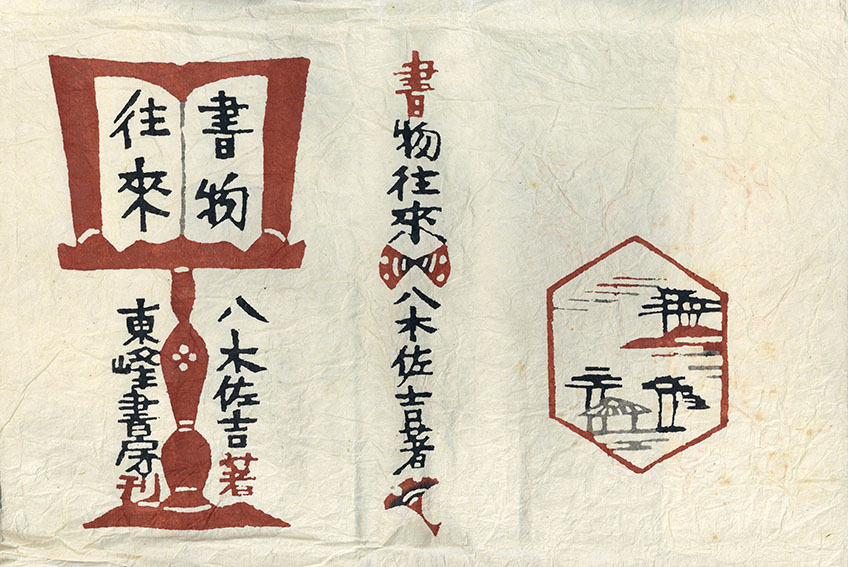 書物
往來
八木佐吉著
東峰書房刊
書物往來
八木佐吉著